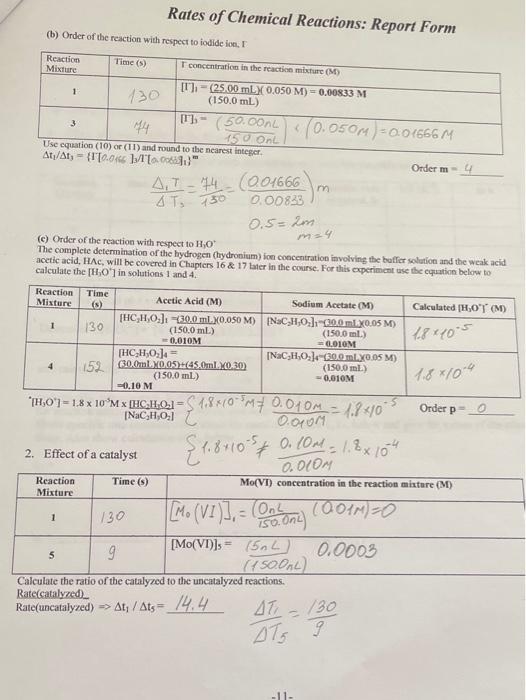 Rates of Chemical Reactions: Report Form
(b) Order of the reaction with respect to iodide ion, I⁻
Reaction Mixture Time (s) I⁻ concentration in the reaction mixture (M)
1 130 [I⁻]₁ = (25.00 mL)( 0.050 M) = 0.00833 M
(150.0 mL)
3 74 [I⁻]₃ = (50.00mL) × (0.050M)=0.01666M
150.0mL
Use equation (10) or (11) and round to the nearest integer.
Δt₁/Δt₃ = {I⁻[0.0166 ]₃/I⁻[0.00833]₁}ᵐ
Order m = 4
Δ₁T = 74 = (0.01666) m
ΔT₃ 130 0.00833
0.5 = 2m
m=4
(c) Order of the reaction with respect to H₃O⁺
The complete determination of the hydrogen (hydronium) ion concentration involving the buffer solution and the weak acid
acetic acid, HAc, will be covered in Chapters 16 & 17 later in the course. For this experiment use the equation below to
calculate the [H₃O⁺] in solutions 1 and 4.
Reaction Mixture Time (s) Acetic Acid (M) Sodium Acetate (M) Calculated [H₃O⁺]* (M)
1 130 [HC₂H₃O₂]₁ =(30.0 mL)(0.050 M) [NaC₂H₃O₂]₁=(30.0 mL)(0.05 M) 1.8×10⁻⁵
(150.0 mL) (150.0 mL)
= 0.010M = 0.010M
4 152 [HC₂H₃O₂]₄ = [NaC₂H₃O₂]₄=(30.0 mL)(0.05 M) 1.8 ×10⁻⁴
(30.0mL)(0.05)+(45.0mL)(0.30) (150.0 mL)
(150.0 mL) = 0.010M
=0.10 M
*[H₃O⁺] = 1.8 x 10⁻⁵M x [HC₂H₃O₂] = {1.8×10⁻⁵M≠ 0.010M = 1.8×10⁻⁵ Order p = 0
[NaC₂H₃O₂] 0.010M
{1.8×10⁻⁵≠ 0.10M = 1.8×10⁻⁴
0.010M
2. Effect of a catalyst
Reaction Mixture Time (s) Mo(VI) concentration in the reaction mixture (M)
1 130 [Mo(VI)]₁ = (0mL (0.01M)=0
150.0mL)
5 9 [Mo(VI)]₅ = (5mL) 0.0003
(150.0mL)
Calculate the ratio of the catalyzed to the uncatalyzed reactions.
Rate(catalyzed)
Rate(uncatalyzed) => Δt₁ / Δt₅ = 14.4
ΔT₁ = 130
ΔT₅ 9
-11-